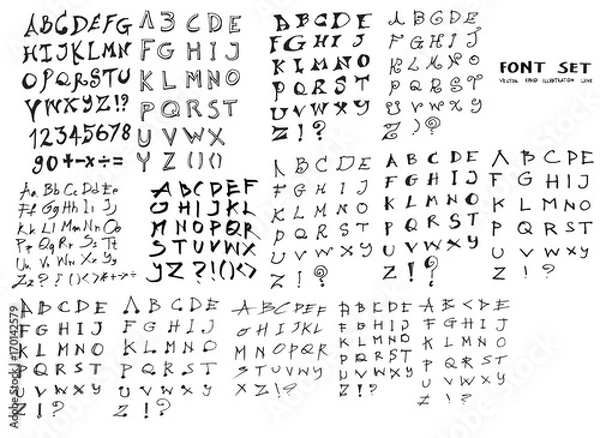 ABCDEFG
HIJKLMN
OPQRSTU
VWXYZ!?
12345678
90+-x÷=
A3CDE
FGHIJ
KLMNO
PQRST
UVWX
YZ!()
ABCDE
FGHIJ
KLMNO
PQRST
UVWXY
Z!?
ABCDE
FGHIJ
KLMNO
PQRST
UVWXY
Z)!?
FONT SET
VECTOR EPS10 ILLUSTRATION LINE
Aa Bb Cc Dd Ee
Ff Gg Hh Ii Jj
Kk Ll Mm Nn Oo
Pp Qq Rr Ss Tt
Uu Vv Ww Xx Yy
Zz?!()<>*+-÷
ABCDEF
GHIJKL
MNOPQR
STUVWX
YZ?!()<>
ABCDE
FGHIJ
KLMNO
PQRST
UVWXY
Z!?
ABCDE
FGHIJ
KLMNO
PQRST
UVWXY
Z!?
ABCDE
FGHIJ
KLMNO
PQRST
UVWXY
Z!?
ABCDE
FGHIJ
KLMNO
PQRST
UVWXY
Z!?
ABCDE
FGHIJ
KLMNO
PQRST
UVWXY
Z!?
ABCDEF
GHIJKL
MNOPQR
STUVW
XZ!?
ABCDE
FGHIJ
KLMNO
PQRST
UVWXY
Z!?
ABCDE
FGHIJ
KLMNO
PQRST
UVWXY
Z!?
Adobe Stock | #170142579